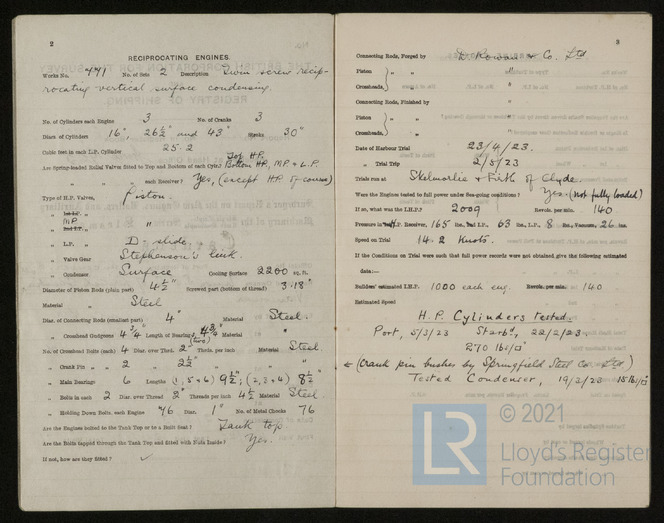 2
RECIPROCATING ENGINES.
Works No. 771 No. of Sets 2 Description Twin screw recip-
rocating vertical surface condensing.
No. of Cylinders each Engine 3 No. of Cranks 3
Diars. of Cylinders 16", 26½" and 43" Stroke 30"
Cubic feet in each L.P. Cylinder 25.2
Top H.P.
Are Spring-loaded Relief Valves fitted to Top and Bottom of each Cylr.? Bottom H.P., M.P. & L.P.
" " each Receiver? Yes, (except H.P. of course)
Type of H.P. Valves, Piston.
" 1st I.P. "
M.P. "
" 2nd I.P. "
" L.P. " D-slide.
" Valve Gear Stephenson's link.
" Condenser Surface Cooling Surface 2200 sq. ft.
Diameter of Piston Rods (plain part) 4½" Screwed part (bottom of thread) 3.18"
Material " Steel
Diar. of Connecting Rods (smallest part) 4" Material Steel.
" Crosshead Gudgeons 4¾" Length of Bearing 4¾" (two) Material "
No. of Crosshead Bolts (each) 4 Diar. over Thrd. 2" Thrds. per inch Material Steel
" Crank Pin " " 2 " 2½" " "
" Main Bearings 6 Lengths (1, 5 & 6) 9½"; (2, 3 & 4) 8½"
" Bolts in each 2 Diar. over Thread 2" Threads per inch 4½ Material Steel
" Holding Down Bolts, each Engine 76 Diar. 1" No. of Metal Chocks 76
Are the Engines bolted to the Tank Top or to a Built Seat? Tank top.
Are the Bolts tapped through the Tank Top and fitted with Nuts Inside? Yes.
If not, how are they fitted? ✓
3
Connecting Rods, Forged by D. Rowan & Co. Ltd
Piston " " "
Crossheads, " " "
Connecting Rods, Finished by
Piston " " "
Crossheads, " " "
Date of Harbour Trial 23/4/23.
" Trial Trip 2/5/23
Trials run at Skelmorlie & Firth of Clyde.
Were the Engines tested to full power under Sea-going conditions? Yes. (not fully loaded)
If so, what was the I.H.P.? 2009 Revols. per min. 140
Pressure in 1st I.P. Receiver, 165 lbs., 2nd I.P., 63 lbs., L.P., 8 lbs., Vacuum, 26 ins.
Speed on Trial 14.2 Knots.
If the Conditions on Trial were such that full power records were not obtained give the following estimated
data:—
Builders' estimated I.H.P. 1000 each eng. Revols. per min. 140
Estimated Speed
H.P. Cylinders tested.
Port, 5/3/23 Starbd, 22/2/23
270 lbs/□"
← (Crank pin bushes by Springfield Steel Co. Ltd)
Tested Condenser, 19/3/23 15 lbs/□"
LR
© 2021
Lloyd's Register
Foundation